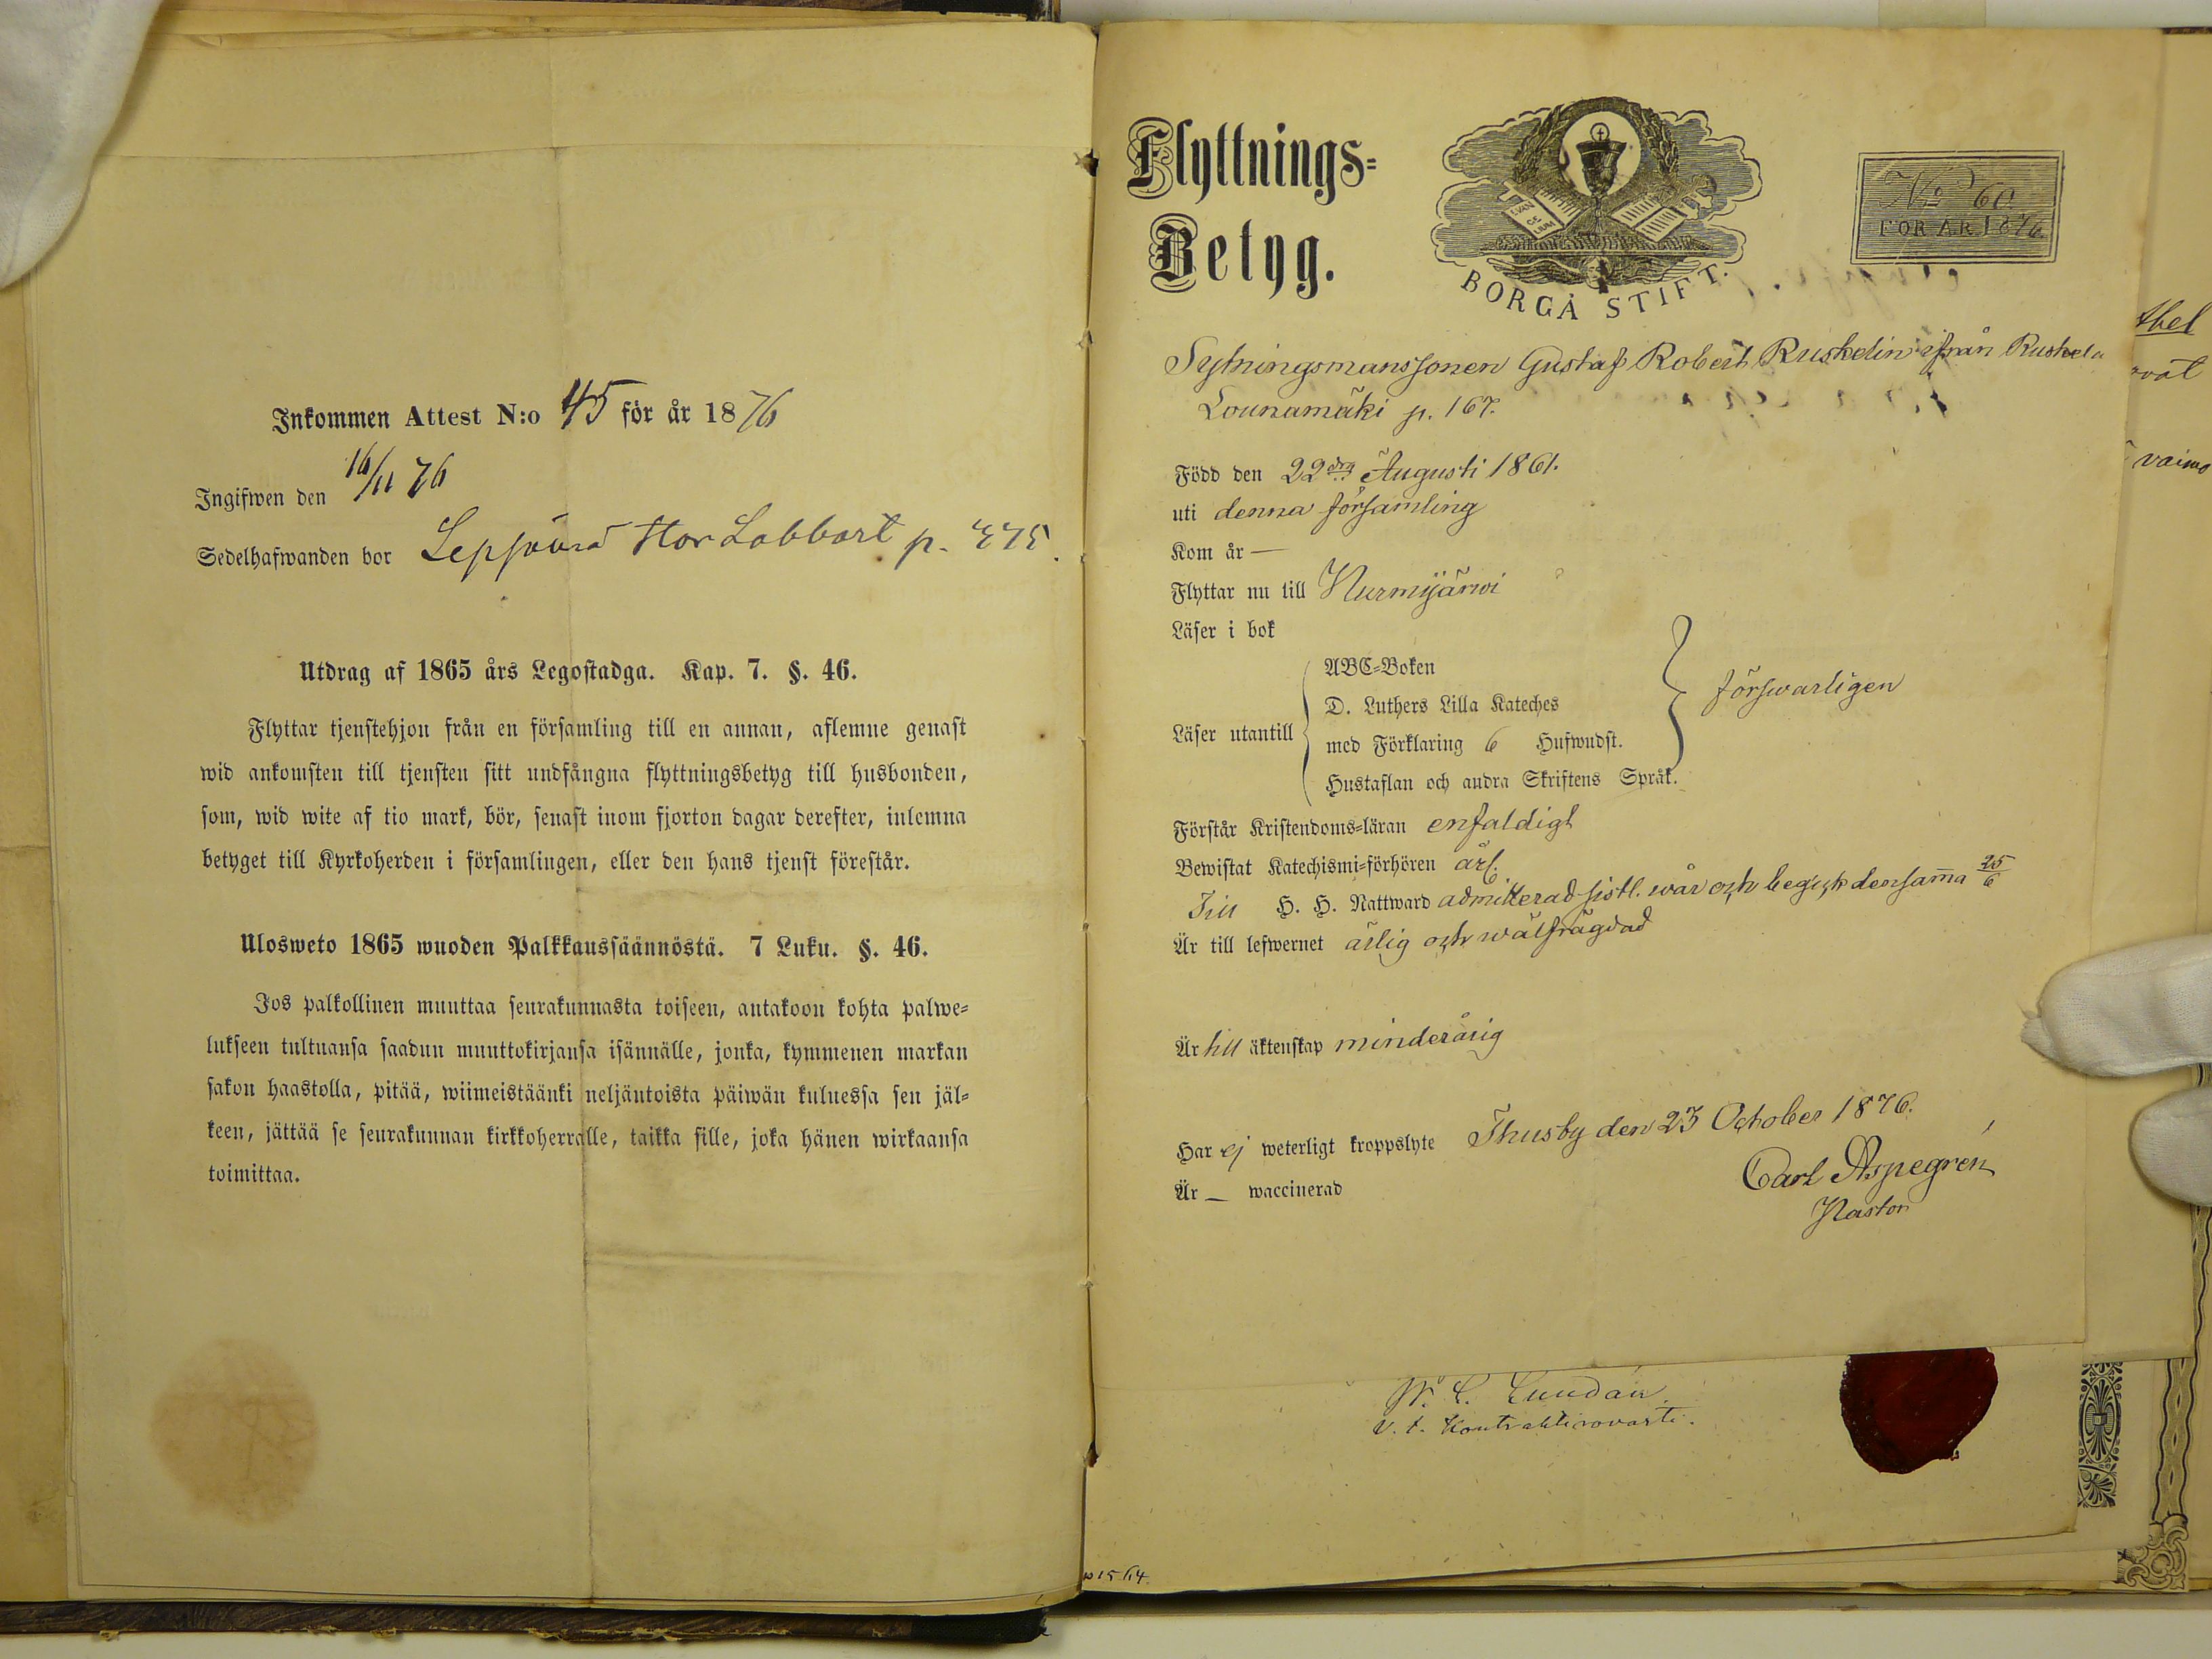 Inkommen Attest N:o 45 för år 1876
Ingifwen den 16/11 76
Sedelhafwanden bor Leppävaa Stor Labbart p. 475.
Utdrag af 1865 års Legostadga. Kap. 7. §. 46.
Flyttar tjenstehjon från en församling till en annan, aflemne genast
wid ankomsten till tjensten sitt undfångna flyttningsbetyg till husbonden,
som, wid wite af tio mark, bör, senast inom fjorton dagar derefter, inlemna
betyget till Kyrkoherden i församlingen, eller den hans tjenst förestår.
Ulosweto 1865 wuoden Palkkaussäännöstä. 7 Luku. §. 46.
Jos palkollinen muuttaa seurakunnasta toiseen, antakoon kohta palwe-
lukseen tultuansa saadun muuttokirjansa isännälle, jonka, kymmenen markan
sakon haastolla, pitää, wiimeistäänki neljäntoista päiwän kuluessa sen jäl-
keen, jättää se seurakunnan kirkkoherralle, taikka sille, joka hänen wirkaansa
toimittaa.
Flyttnings-
Betyg.
EVAN
GE
LIUM
BORGÅ STIFT.
No 60.
FÖR ÅR 1876.
Sytningsmanssonen Gustaf Robert Ruskelin ifrån Ruskela
Lounamäki p. 167.
Född den 22dra Augusti 1861.
uti denna församling
Kom år —
Flyttar nu till Nurmijärwi
Läser i bok
Läser utantill
ABC-Boken
D. Luthers Lilla Kateches
med Förklaring 6 Hufwudst.
Hustaflan och andra Skriftens Språk.
förswarligen
Förstår Kristendoms-läran enfaldigt
Bewistat Katechismi-förhören årl.
Till H. H. Nattward admitterad sistl. wår och begick densamma 25/6
Är till lefwernet ärlig och wälfrägdad
Är till äktenskap minderårig
Har ej weterligt kroppslyte Thusby den 23 October 1876.
Är — waccinerad
Carl Aspegrén
Pastor
v. t. Kontrahtirovasti.